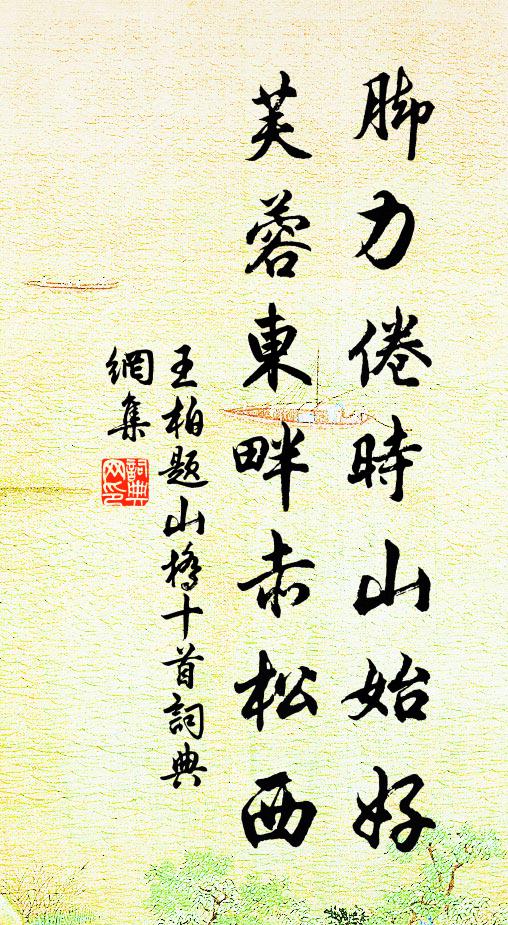 脚力倦時山始好
芙蓉東畔赤松西
王柏题山橋十首詞典
網集
詞典
网印